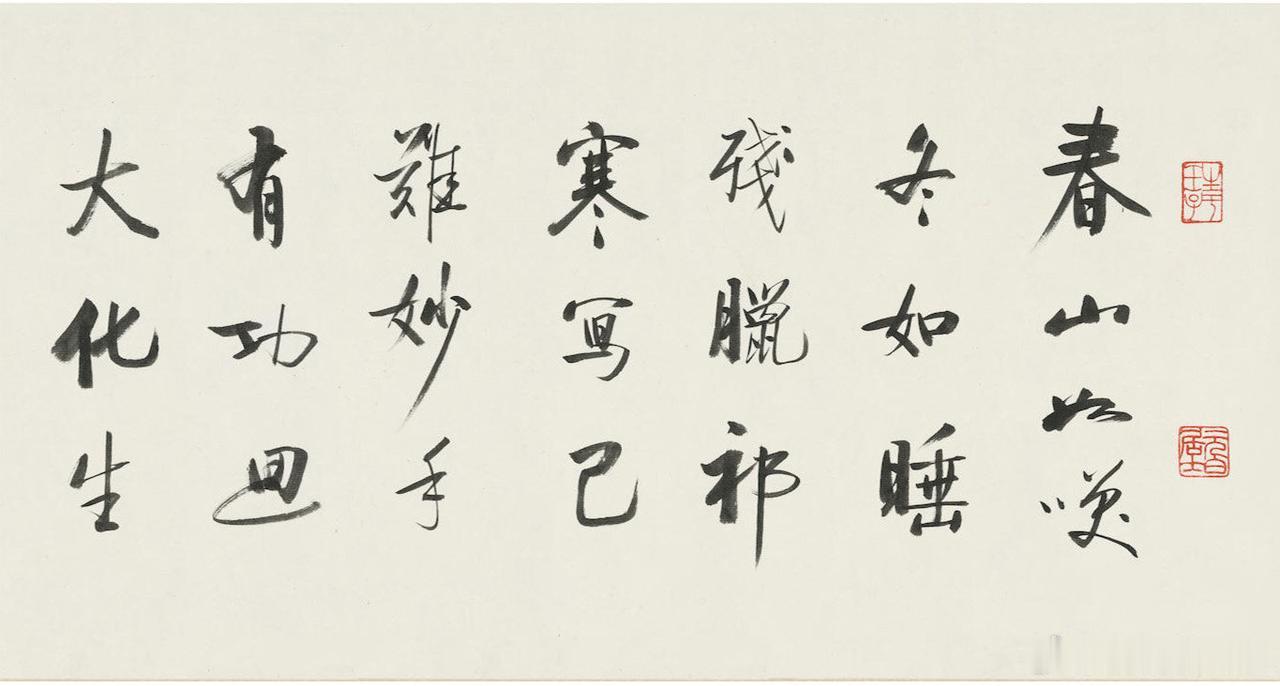 春山如咲
冬如睡
残臘祁
寒冩已
難妙手
有功迴
大化生